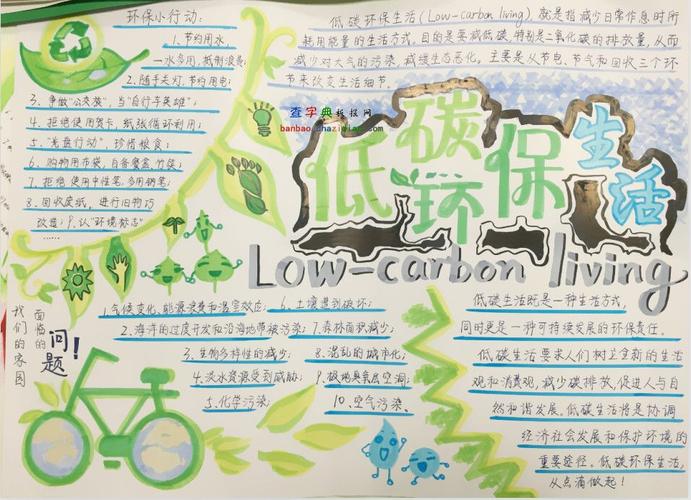 环保小行动：
1.节约用水，
一水多用，抵制浪费；
2.随手关灯，节约用电；
3.争做“公交族”，当“自行车英雄”；
4.拒绝使用贺卡，纸张循环利用；
5.“光盘行动”，珍惜粮食；
6.购物用布袋，自备餐盒、竹筷；
7.拒绝使用中性笔，多用钢笔；
8.回收废纸，进行旧物巧
改造；9.认“环境标志”
……
低碳环保生活(Low-carbon living)，就是指减少日常作息时所
耗用能量的生活方式，目的是要减低碳，特别是二氧化碳的排放量，从而
减少对大气的污染，减缓生态恶化。主要是从节电、节气和回收三个环
节来改变生活细节。
查字典手抄报网
低碳环保生活
Low-carbon living
我们的家园
面临的
问题！
1.气候变化，能源浪费和温室效应；
2.海洋的过度开发和沿海地带被污染；
3.生物多样性的减少；
4.淡水资源受到威胁；
5.化学污染；
6.土壤遭到破坏；
7.森林面积减少；
8.混乱的城市化；
9.极地臭氧层空洞；
10.空气污染。
低碳生活既是一种生活方式，
同时更是一种可持续发展的环保责任。
低碳生活要求人们树立全新的生活
观和消费观，减少碳排放，促进人与自
然和谐发展。低碳生活将是协调
经济社会发展和保护环境的
重要途径。低碳环保生活，
从点滴做起！